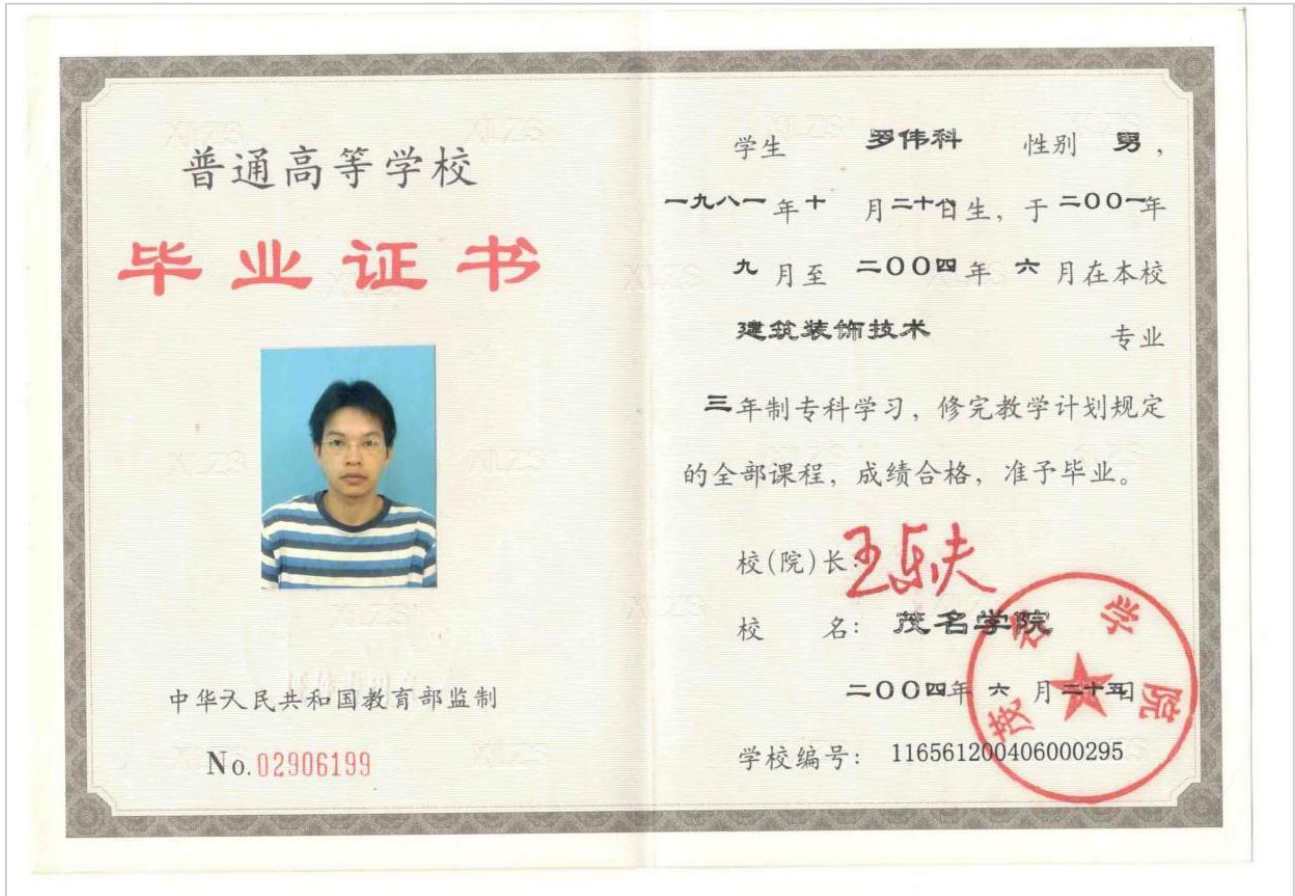 普通高等学校
毕业证书
中华人民共和国教育部监制
No.02906199
学生 罗伟科 性别 男,
一九八一年十 月二十 日生, 于二00一年
九月至 二00四年 六 月在本校
建筑装饰技术 专业
三年制专科学习, 修完教学计划规定
的全部课程, 成绩合格, 准予毕业。
校(院)长: 王乐夫
校 名: 茂名学院
二00四年 六 月二十五日
学校编号: 116561200406000295
茂名学院
XLZS